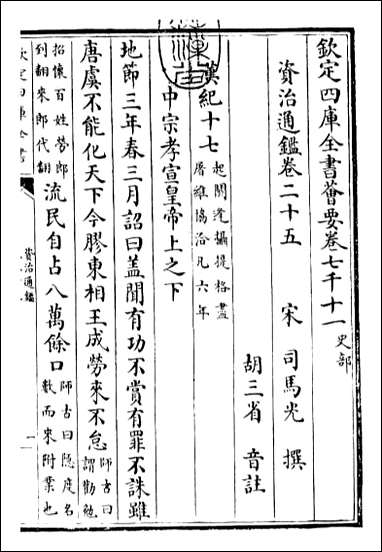 欽定四庫全書薈要卷七千十一 史部
資治通鑑卷二十五
宋 司馬光 撰
胡三省 音註
漢紀十七 起閼逢攝提格盡屠維協洽凡六年
中宗孝宣皇帝上之下
地節三年春三月詔曰蓋聞有功不賞有罪不誅雖
唐虞不能化天下今膠東相王成勞來不怠 師古曰謂勸勉
招懷百姓勞郎到翻來郎代翻 流民自占八萬餘口 師古曰隱度名數而來附業也
欽定四庫全書
資治通鑑
一